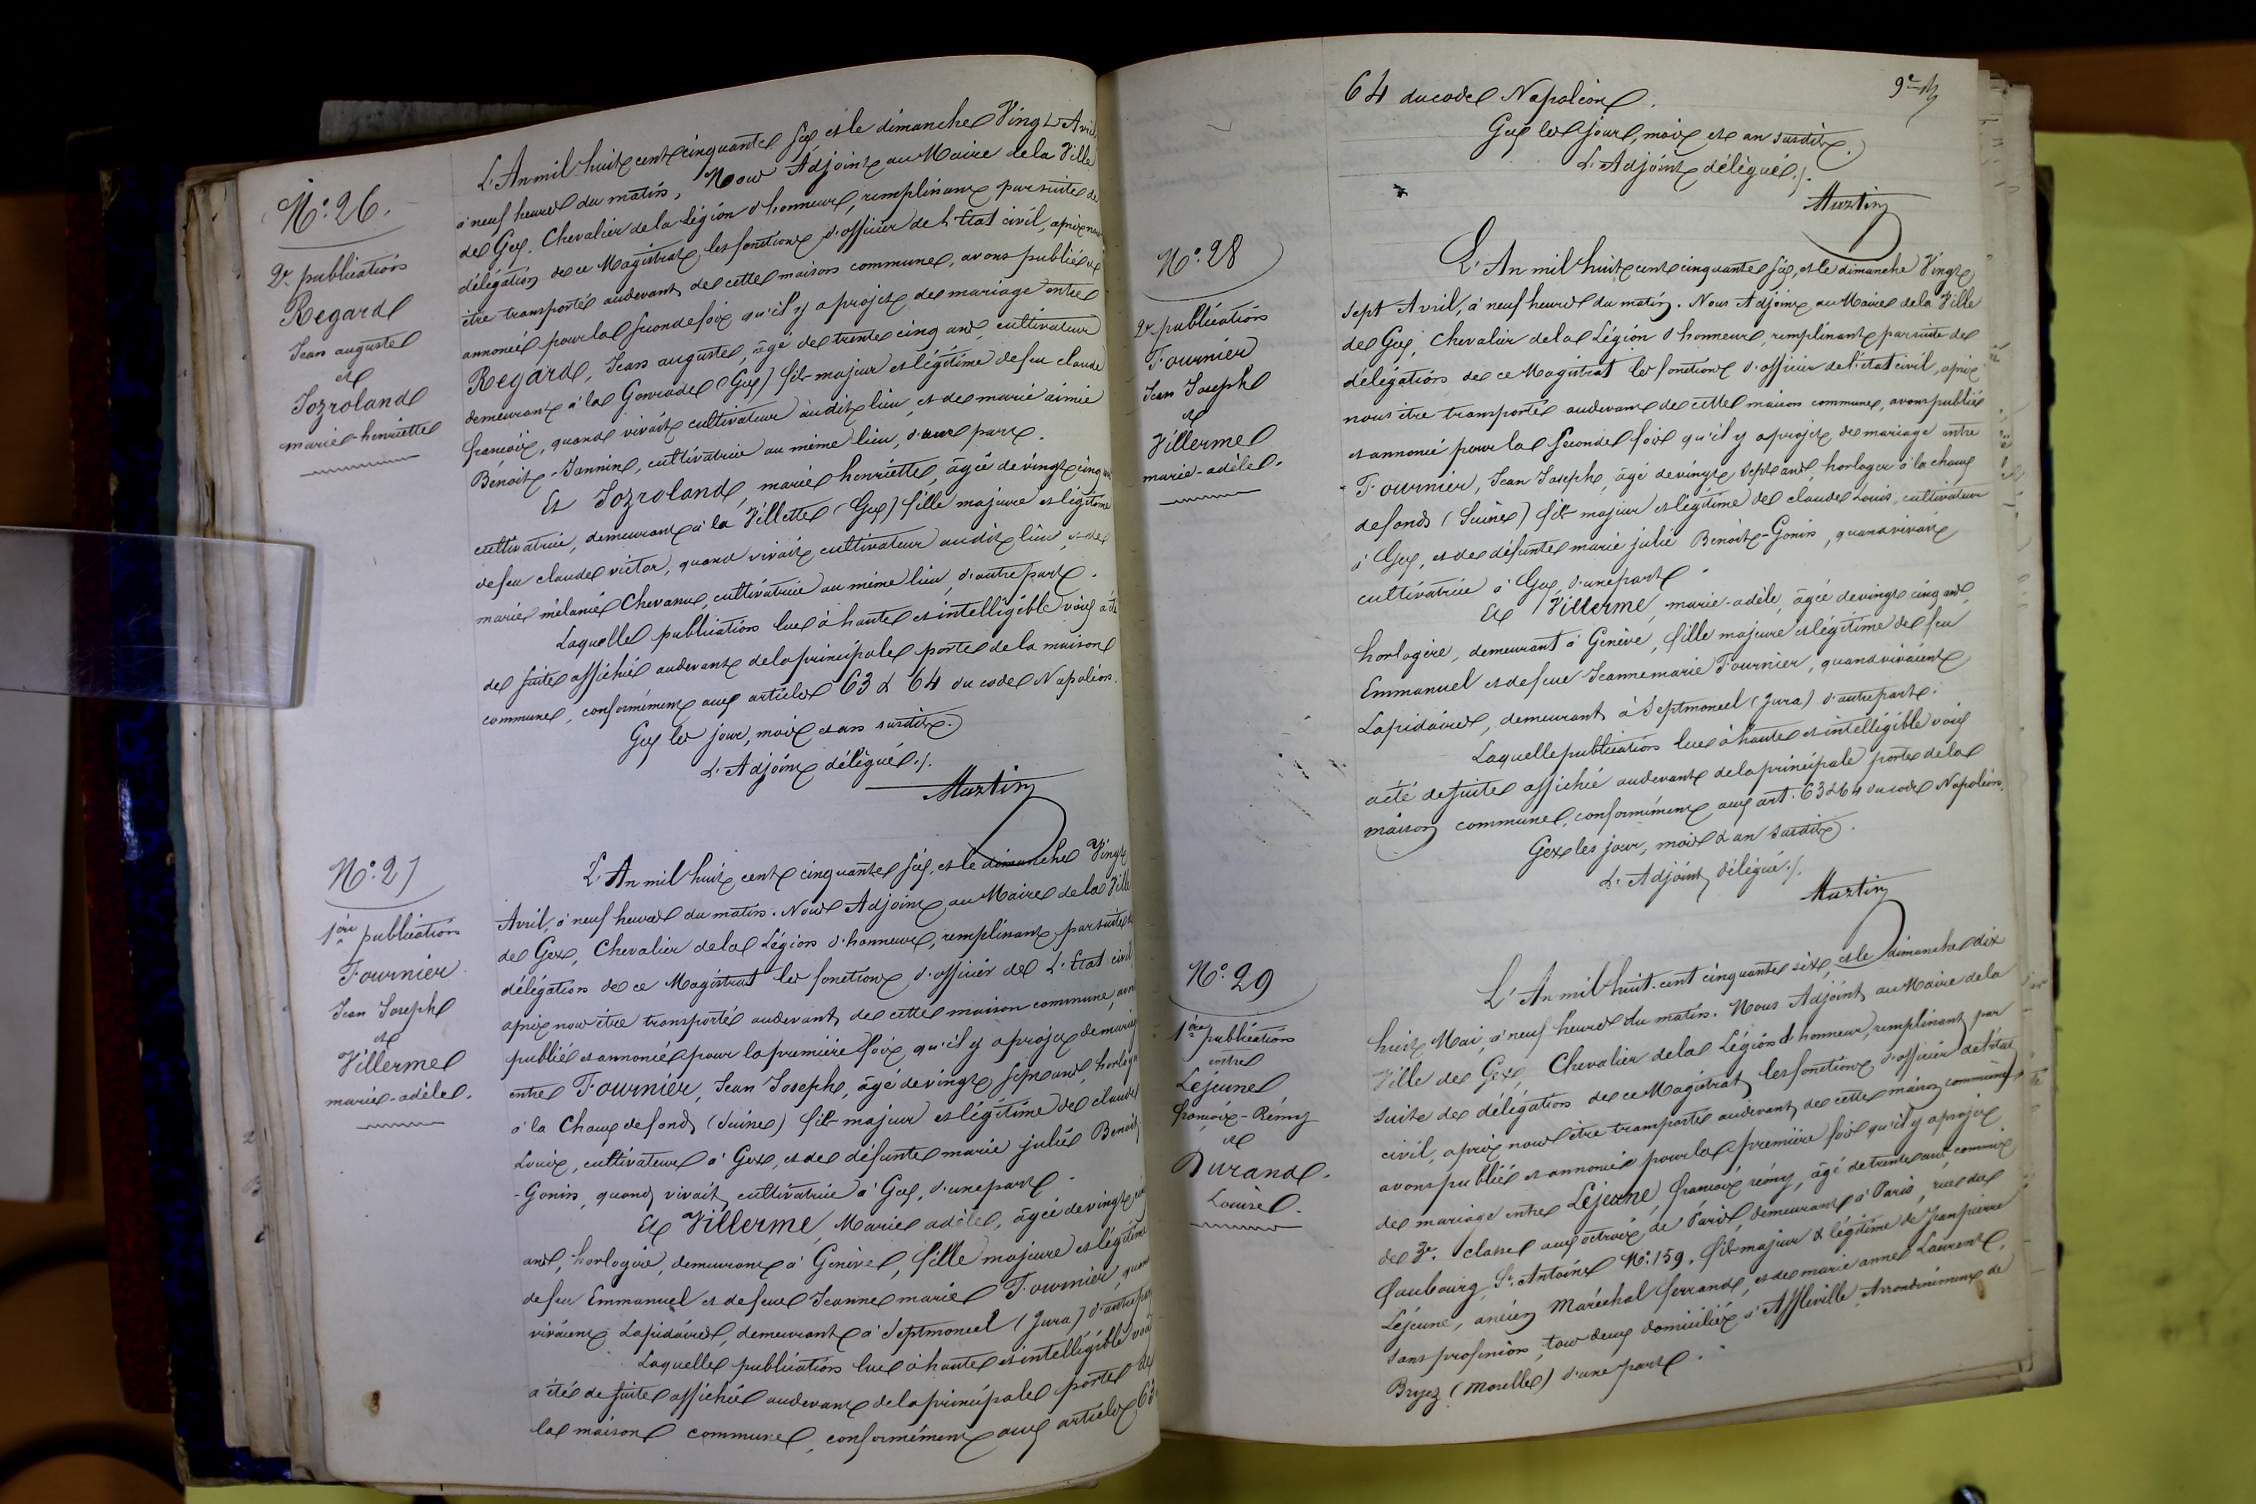 N.º 26.
2.e publication
Regard
Jean auguste
et
Jozroland
marie-henriette
L'An mil huit cent cinquante six et le dimanche Vingt Avril
à neuf heures du matin, Nous Adjoint au Maire de la Ville
de Gex, Chevalier de la Légion d'honneur, remplissant par suite de
délégation de ce Magistrat, les fonctions d'officier de l'Etat civil, après nous
être transporté audevant de cette maison commune, avons publié et
annoncé pour la seconde fois qu'il y a projet de mariage entre
Regard, Jean auguste, âgé de trente cinq ans, cultivateur
demeurant à la (Gex) fils majeur et légitime de feu claude
françois, quand vivait cultivateur audit lieu, et de marie aimée
Benoit-Jannin, cultivatrice au même lieu, d'une part.
Et Jozroland, marie henriette, âgée de vingt cinq ans
cultivatrice, demeurant à la Villette (Gex) fille majeure et légitime
de feu claude victor, quand vivait cultivateur audit lieu, et de
marie mélanie Chevanne, cultivatrice au même lieu, d'autre part.
Laquelle publication lue à haute et intelligible voix a été
de suite affichée audevant de la principale porte de la maison
commune, conformément aux articles 63 & 64 du code Napoléon.
Gex les jour, mois et an susdits.
L'Adjoint délégué./.
Martin
N.º 27
1ère publication
Fournier
Jean Joseph
et
Villerme
marie-adèle.
L'An mil huit cent cinquante six, et le dimanche Vingt
Avril, à neuf heures du matin. Nous Adjoint au Maire de la Ville
de Gex, Chevalier de la Légion d'honneur, remplissant par suite de
délégation de ce Magistrat les fonctions d'officier de L'Etat civil
après nous être transporté audevant de cette maison commune, avons
publié et annoncé pour la première fois, qu'il y a projet de mariage
entre Fournier, Jean Joseph, âgé de vingt sept ans, horloger
à la Chaux de fonds (Suisse) fils majeur et légitime de claude
Louis, cultivateur à Gex, et de défunte marie julie Benoit
-Gonin, quand vivait, cultivatrice à Gex, d'une part.
Et Villerme, Marie adèle, âgée de vingt cinq
ans, horlogère, demeurant à Genève, fille majeure et légitime
de feu Emmanuel et de feue Jeanne marie Fournier, quand
vivaient Lapidaires, demeurant à Septmoncel (Jura) d'autre part
Laquelle publication lue à haute et intelligible voix
a été de suite affichée audevant de la principale porte de
la maison commune, conformément aux articles 63
64 du code Napoléon.
Gex les jour, mois et an susdits.
L'Adjoint délégué./.
Martin
N.º 28
2.e publication
Fournier
Jean Joseph
et
Villerme
marie-adèle.
L'An mil huit cent cinquante six, et le dimanche Vingt
sept Avril, à neuf heures du matin. Nous Adjoint au Maire de la Ville
de Gex, Chevalier de la Légion d'honneur, remplissant par suite de
délégation de ce Magistrat les fonctions d'officier de l'état civil, après
nous être transporté audevant de cette maison commune, avons publié
et annoncé pour la seconde fois qu'il y a projet de mariage entre
Fournier, Jean Joseph, âgé de vingt sept ans, horloger à la chaux
de fonds (Suisse) fils majeur et légitime de claude Louis, cultivateur
à Gex, et de défunte marie julie Benoit-Gonin, quand vivait
cultivatrice à Gex, d'une part.
Et Villerme, marie-adèle, âgée de vingt cinq ans,
horlogère, demeurant à Genève, fille majeure et légitime de feu
Emmanuel et de feue Jeanne marie Fournier, quand vivaient
Lapidaires, demeurant à Septmoncel (Jura) d'autre part.
Laquelle publication lue à haute et intelligible voix
a été de suite affichée audevant de la principale porte de la
maison commune, conformément aux art. 63 & 64 du code Napoléon.
Gex les jour, mois & an susdits.
L'Adjoint délégué./.
Martin
N.º 29
1ère publication
entre
Lejeune
françois-Rémy
et
Durand.
Louise.
L'An mil huit cent cinquante six, et le dimanche dix
huit Mai, à neuf heures du matin. Nous Adjoint au Maire de la
Ville de Gex, Chevalier de la Légion d'honneur, remplissant par
suite de délégation de ce Magistrat, les fonctions d'officier de l'état
civil, après nous être transporté audevant de cette maison commune,
avons publié et annoncé pour la première fois qu'il y a projet
de mariage entre Lejeune, françois rémy, âgé de trente ans, commis
de 3.e classe aux octrois de Paris, demeurant à Paris, rue du
faubourg St. Antoine N.º 159, fils majeur & légitime de Jean pierre
Lejeune, ancien Maréchal ferrand, et de marie anne Laurent,
sans profession, tous deux domiciliés à Affleville Arrondissement de
Bryez (Moselle) d'une part.